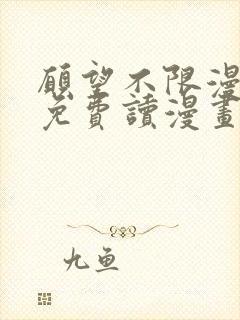 願望不限漫
免費讀漫畫
九鱼